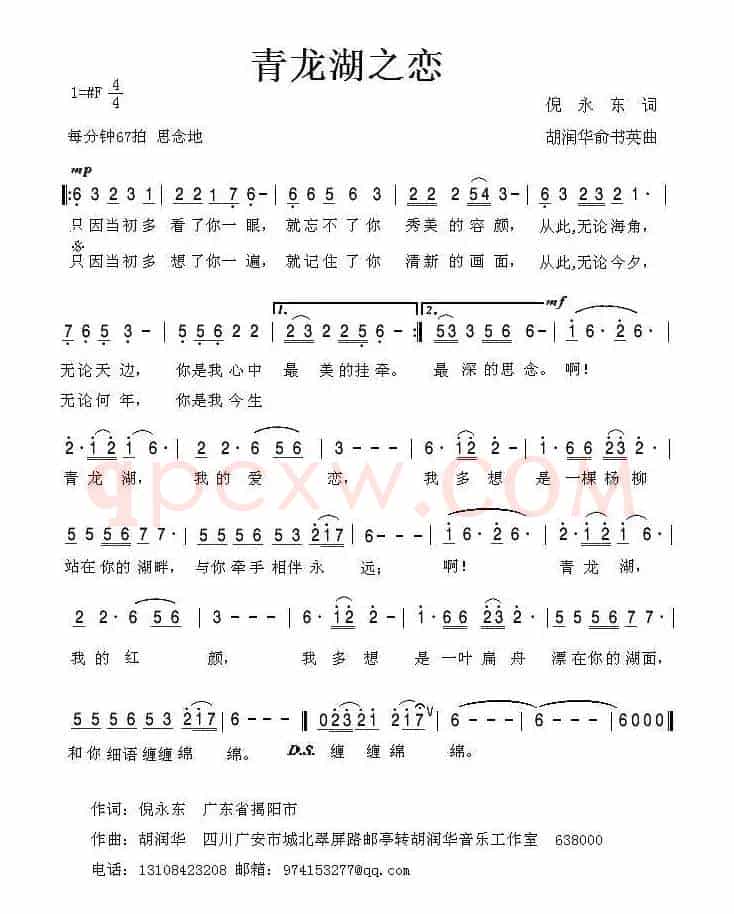 青龙湖之恋
1=#F 4/4
倪永东词
每分钟67拍 思念地
胡润华俞书英曲
mp
6 3 2 3 1 | 2 2 1 7 6 - | 6 6 5 6 3 | 2 2 2 5 4 3 - | 6 3 2 3 2 1 · |
只因当初多 看了你一眼，就忘不了你 秀美的容颜，从此,无论海角，
只因当初多 想了你一遍，就记住了你 清新的画面，从此,无论今夕，
1. 2. mf
7 6 5 3 - | 5 5 6 2 2 | 2 3 2 2 5 6 - :| 5 3 3 5 6 5 - - | 1 6 · 2 6 · |
无论天边， 你是我心中 最 美的挂牵。 最 深的思念。啊！
无论何年，你是我今生
2 · 1 2 1 6 · | 2 2 · 6 5 6 | 3 - - - | 6 · 1 2 2 - | 1 · 6 6 2 3 2 · |
青 龙 湖， 我 的 爱 恋， 我 多 想 是 一棵杨柳
qpcxw.COM
5 5 5 5 6 7 7 · | 5 5 5 6 5 3 2 1 7 | 6 - - · | 1 6 · 2 6 · | 2 · 1 2 1 6 · |
站在你的湖畔， 与你牵手相伴永 远； 啊！ 青 龙 湖，
2 2 · 6 5 6 | 3 - - - | 6 · 1 2 2 - | 1 · 6 6 2 3 2 · | 5 5 5 5 6 7 7 · |
我 的 红 颜， 我 多 想 是 一叶扁舟 漂在你的湖面，
5 5 5 6 5 3 2 1 7 | 6 - - - ‖ 0 2 3 2 1 2 1 7 V | 6 - - - | 6 - - - | 6 0 0 0 ‖
和你细语缠缠绵 绵。 D.S. 缠 缠绵 绵。
作词：倪永东 广东省揭阳市
作曲：胡润华 四川广安市城北翠屏路邮亭转胡润华音乐工作室 638000
电话：13108423208 邮箱：974153277@qq.com